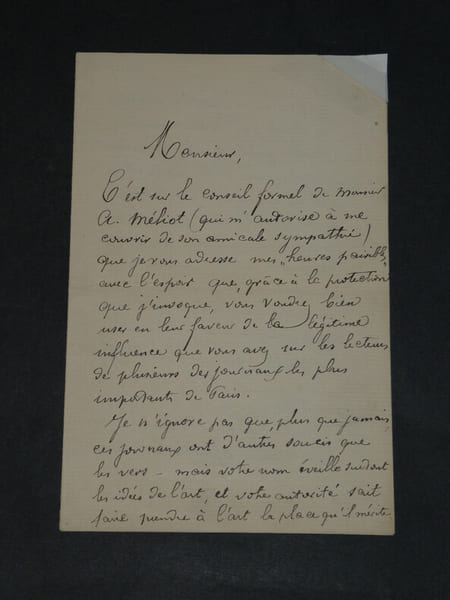 Monsieur,
C'est sur le conseil formel de Monsieur
A. Méliot (qui m'autorise à me
couvrir de son amicale sympathie)
que je vous adresse mes "heures paisibles"
avec l'espoir que, grâce à la protection
que j'invoque, vous voudrez bien
user en leur faveur de la légitime
influence que vous avez sur les lecteurs
de plusieurs des journaux les plus
importants de Paris.
Je n'ignore pas que, plus que jamais,
ces journaux ont d'autres soucis que
les vers - mais votre nom éveille surtout
les idées de l'art, et votre autorité sait
faire prendre à l'art la place qu'il mérite